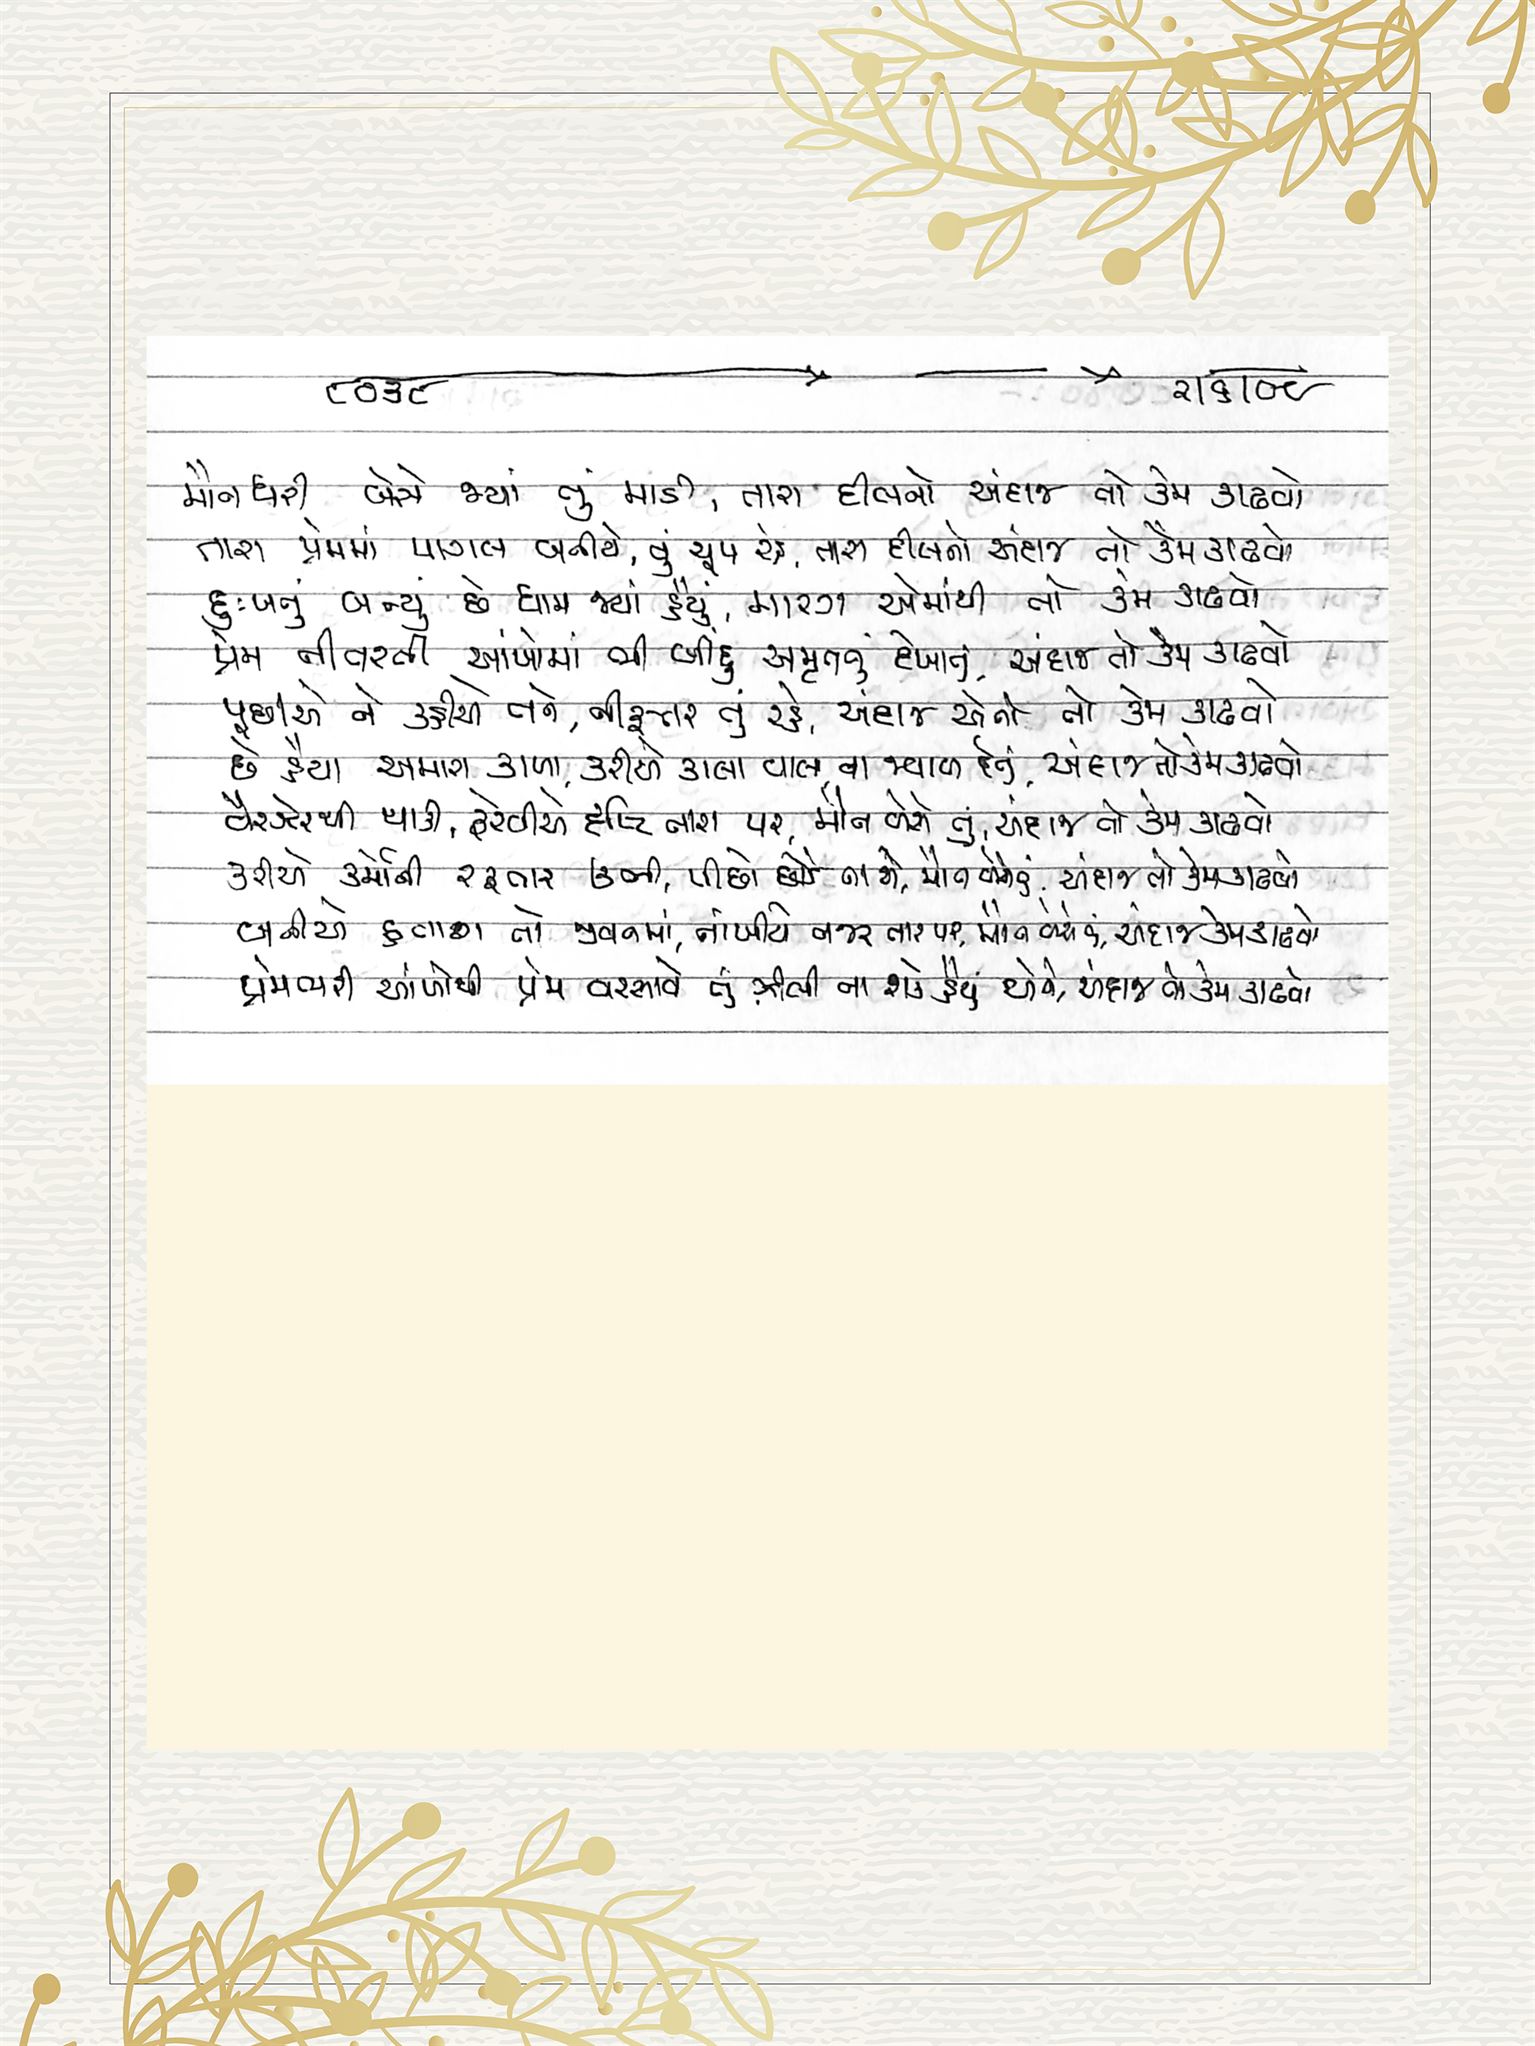 ૮૦૩૮ ૨।૬।૦૮
મૌન ધરી બેસે જ્યાં તું માડી, તારા દીલનો અંદાજ તો કેમ કાઢવો
તારા પ્રેમમાં પાગલ બનીયે, તું ચૂપ રહે, તારા દીલનો અંદાજ તો કેમ કાઢવો
દુઃખનું બન્યું છે ધામ જ્યાં હૈયું, મારગ એમાંથી તો કેમ કાઢવો
પ્રેમ નીતરતી આંખોમાં ભી બીંદુ અમૃતનું દેખાતું, અંદાજ તો કેમ કાઢવો
પૂછીએ ને કહીયે તને, નીરૂત્તર તું રહે, અંદાજ એનો તો કેમ કાઢવો
છે હૈયા અમારા કાળા, કરીએ કાલા વાલા, ના જવાબ દે તું, અંદાજ તો કેમ કાઢવો
વૈરઝેરથી થાકી, ફેરવીએ દૃષ્ટિ તારા પર, મૌન બેસે તું, અંદાજ તો કેમ કાઢવો
કરીએ કર્મોની રફતાર ઊભી, પીછો છોડે ના એ, મૌન બેસે તું, અંદાજ તો કેમ કાઢવો
બનીએ હતાશ તો જીવનમાં, નાંખીયે નજર તારા પર, મૌન બેસે તું, અંદાજ કેમ કાઢવો
પ્રેમભરી આંખોથી પ્રેમ વરસાવે તું ઝીલી ના શકે હૈયું એને, અંદાજ એનો કેમ કાઢવો